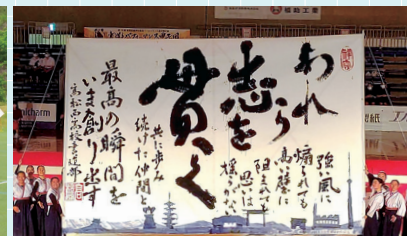 われら
志を
貫く
強風に
煽られても
高い壁に
阻まれても
思いは
揺るがない
共に歩み
続けた仲間と
最高の瞬間を
いま創り出す
高松西高校書道部